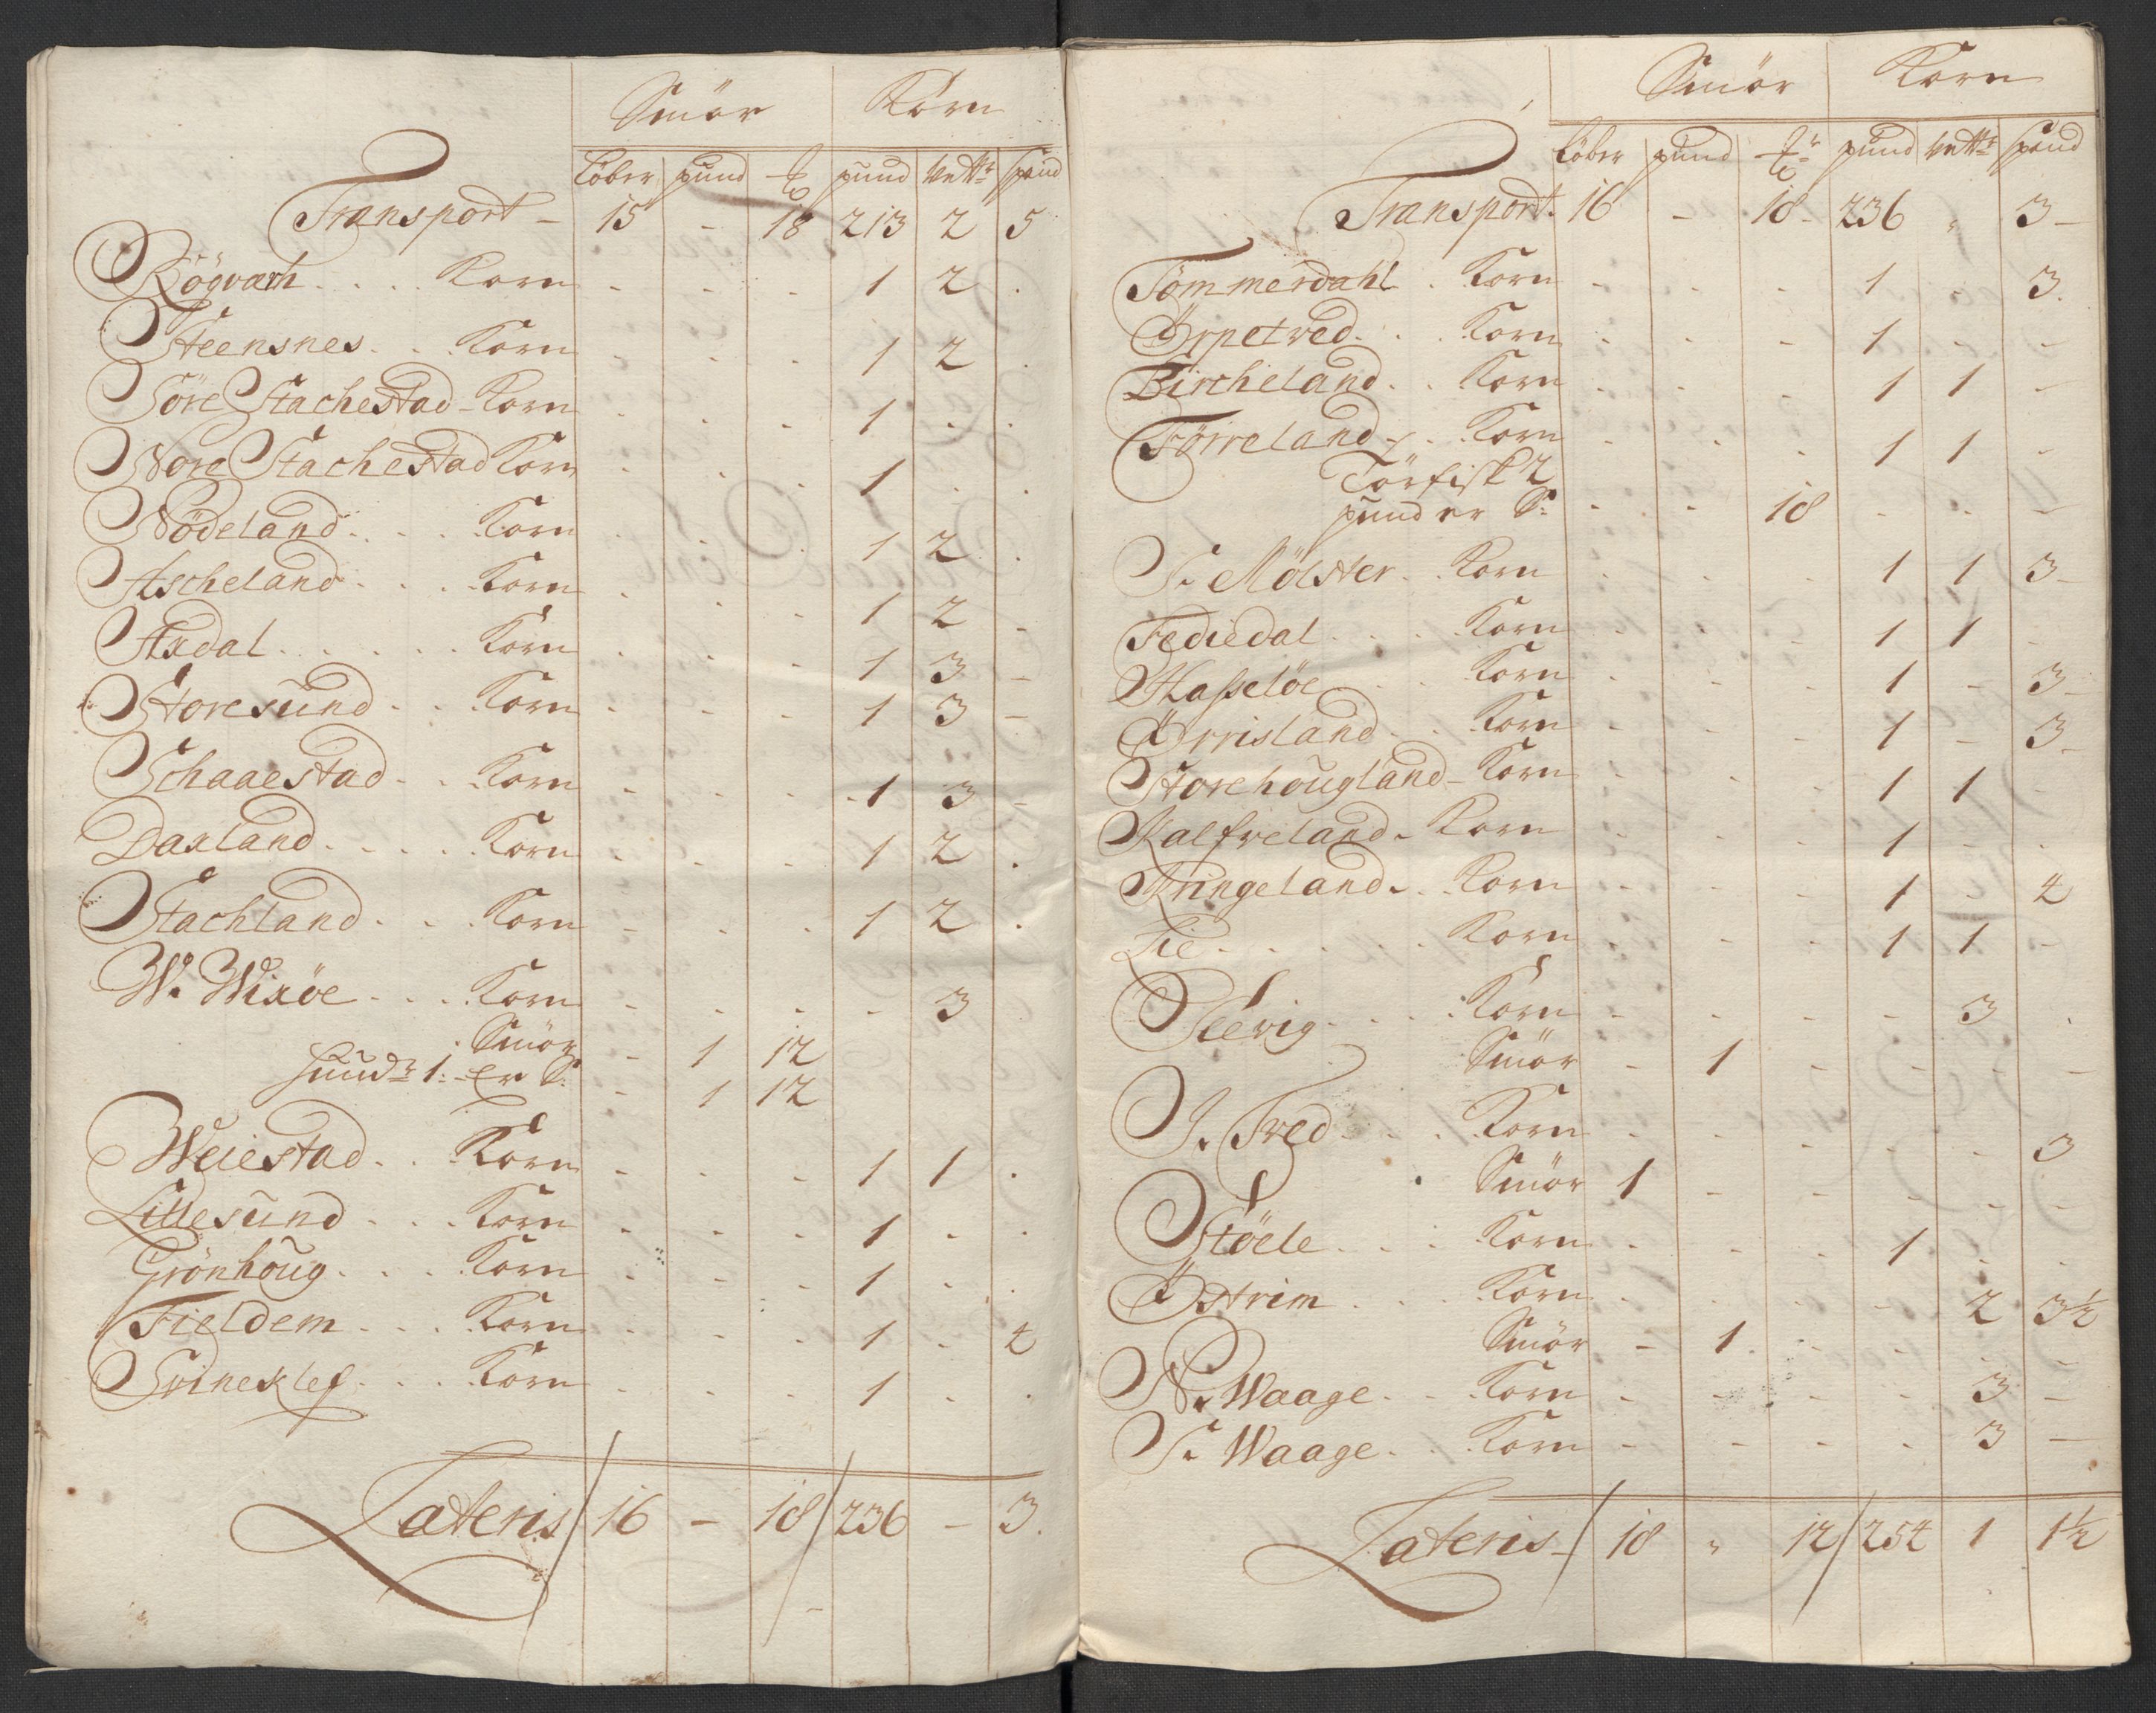 Smör Korn
Löber pund ℔ pund Vettr spand
Transport – 15 - 18 213 2 5
Rögvarh . . . . Korn - - - 1 2 .
Steensnes . . Korn - - - 1 2 .
Söre Stachestad – Korn - - - 1 . .
Nore Stachestad Korn - - - 1 . .
Nödeland . . . . Korn - - - 1 2 .
Ascheland . . . Korn - - - 1 2 -
Axdal . . . . . . Korn - - - 1 3 -
Storesund . . Korn - - - 1 3 -
Schaaestad . . Korn - - - 1 3 -
Daxland . . . . . Korn - - - 1 2 .
Stachland . . . Korn - - - 1 2 .
W. Wixöe . . . Korn - - - - 3
Smör - 1 12
huudr 1. er S. - 1 12
Weiestad . . Korn - - - 1 1 .
Lillesund . . . Korn - - - 1 - .
Grönhoug . . . . Korn - - - 1 - .
Fieldem . . . Korn - - - 1 - 4
Grineklef . . . Korn - - - 1 - .
Lateris 16 – 18 236 – 3.
Smör Korn
Löber pund ℔r pund Vettr spand
Transport. 16 - 18 - 236 " 3 -
Tömmerdahl . Korn - - - 1 - 3.
Örpetved . . . Korn - - - 1 - -
Bircheland . . Korn - - - 1 1 -
Förreland . Korn - - - 1 1 -
Törfisk 2
punder S. - - 18 - - -
S. Mölster . . Korn - - - 1 1 3 -
Fediedal . . . . Korn - - - 1 1 -
Hasseløe . . . Korn - - - 1 - 3 -
Örrisland . . Korn - - - 1 - 3 -
Storehougland – Korn - - - 1 1 -
Kalfveland - Korn - - - 1 - .
Kringeland . . Korn - - - 1 - 4
Lie . . . . . . Korn - - - 1 1 -
Seevig . . . . Korn - - - - 3 .
Smör - 1 - - - -
I. Tved . . . . Korn - - - - - 3
Smör 1 - - - - -
Stöele . . . Korn - - - 1 - .
Östrim . . . Korn - - - - 2 3½
Smör - 1 - - - -
N. Waage . . Korn - - - - 3 -
S. Waage . . Korn - - - - 3 -
Lateris – 18 " 12 254 1 1½